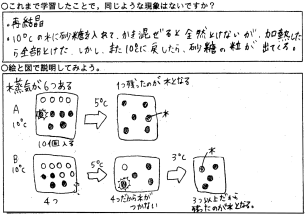 ○これまで学習したことで、同じような現象はないですか？
・再結晶
・10℃の水に砂糖を入れて、かき混ぜると全然とけないが、加熱した
ら全部とけた。しかし、また10℃に戻したら、砂糖の粒が出てくる。
○絵と図で説明してみよう。
水蒸気が6つある
1つ残ったのが水となる
A
10℃
5℃
水
10個入る
B
10℃
5℃
3℃
水
4つ
4つだから水が
つかない
3つ以上だから
残ったのが水となる。